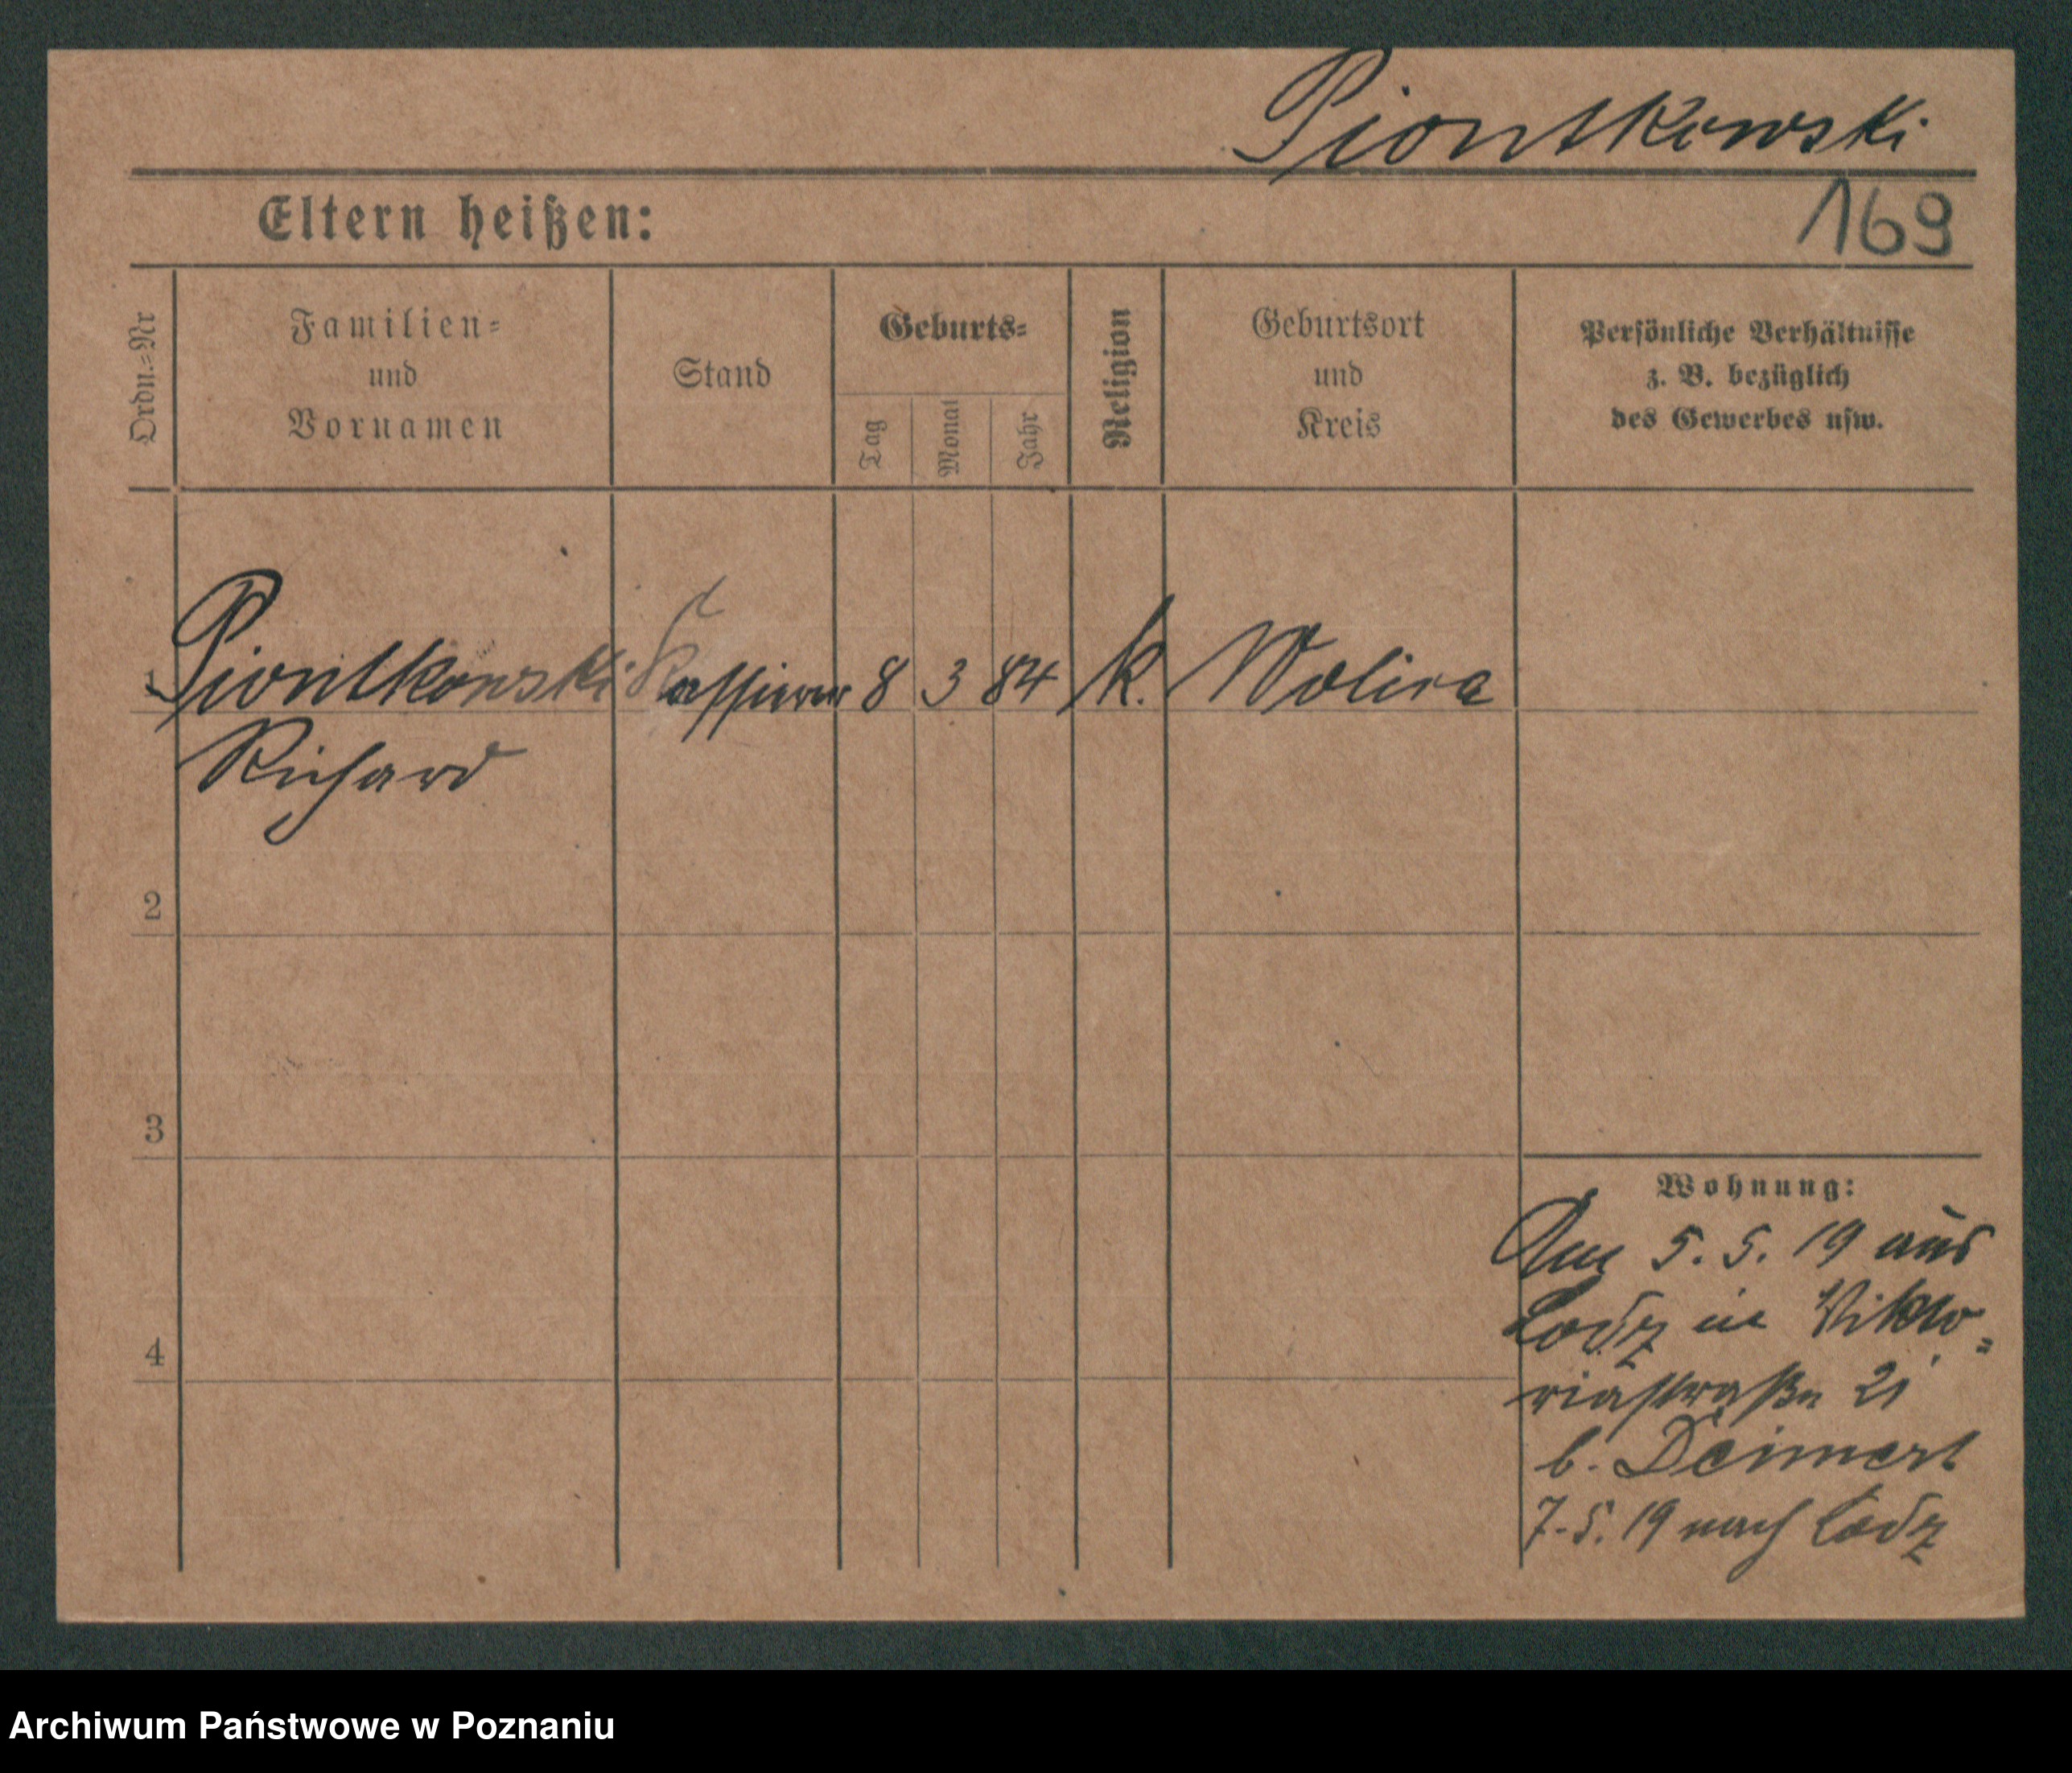 Piontkowski
169
Eltern heißen:
Ordn.-Nr
Familien-
und
Vornamen
Stand
Geburts-
Tag
Monat
Jahr
Religion
Geburtsort
und
Kreis
Persönliche Verhältnisse
z. B. bezüglich
des Gewerbes usw.
1 Piontkowski Kassierer 8 3 84 k. Wolira
Richard
2
3
4
Wohnung:
Am 5. 5. 19 aus
Lodz in Vikto-
riastraße 21
b. Deimert
7. 5. 19 nach Lodz
Archiwum Państwowe w Poznaniu